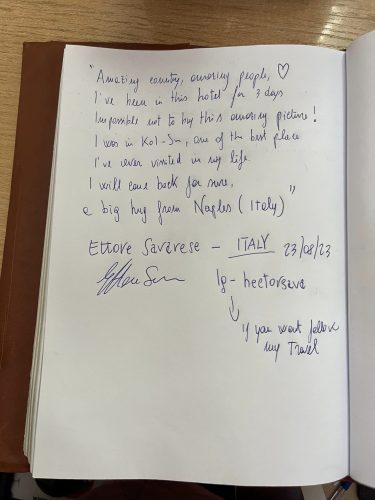 "Amazing country, amazing people, ♡
I've been in this hotel for 3 days
Impossible not to buy this amazing picture!
I was in Kol-Su, one of the best place
I've ever visited in my life.
I will come back for sure,
a big hug from Naples (Italy)"
Ettore Savarese - ITALY 23/08/23
Ig - hectorsava
↓
if you want follow
my Travel